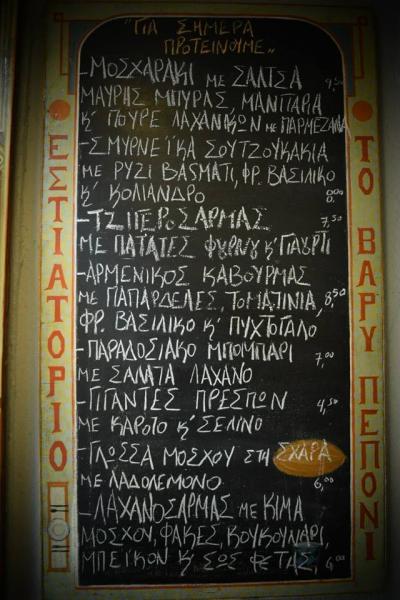 "ΓΙΑ ΣΗΜΕΡΑ
ΠΡΟΤΕΙΝΟΥΜΕ„
-ΜΟΣΧΑΡΑΚΙ ΜΕ ΣΑΛΤΣΑ
ΜΑΥΡΗΣ ΜΠΥΡΑΣ, ΜΑΝΙΤΑΡΙΑ 9,50
Κ' ΠΟΥΡΕ ΛΑΧΑΝΙΚΩΝ ΜΕ ΠΑΡΜΕΖΑΝΑ
-ΣΜΥΡΝΕΪΚΑ ΣΟΥΤΖΟΥΚΑΚΙΑ
ΜΕ ΡΥΖΙ BASMATI, ΦΡ. ΒΑΣΙΛΙΚΟ
Κ' ΚΟΛΙΑΝΔΡΟ 8,00
-ΤΖΙΓΕΡΟΣΑΡΜΑΣ 7,50
ΜΕ ΠΑΤΑΤΕΣ ΦΟΥΡΝΟΥ Κ' ΓΙΑΟΥΡΤΙ
-ΑΡΜΕΝΙΚΟΣ ΚΑΒΟΥΡΜΑΣ
ΜΕ ΠΑΠΑΡΔΕΛΕΣ, ΤΟΜΑΤΙΝΙΑ, 8,50
ΦΡ. ΒΑΣΙΛΙΚΟ Κ' ΠΥΧΤΟΓΑΛΟ
-ΠΑΡΑΔΟΣΙΑΚΟ ΜΠΟΥΜΠΑΡΙ 7,00
ΜΕ ΣΑΛΑΤΑ ΛΑΧΑΝΟ
-ΓΙΓΑΝΤΕΣ ΠΡΕΣΠΩΝ 4,50
ΜΕ ΚΑΡΟΤΟ Κ' ΣΕΛΙΝΟ
-ΓΛΩΣΣΑ ΜΟΣΧΟΥ ΣΤΗ ΣΧΑΡΑ
ΜΕ ΛΑΔΟΛΕΜΟΝΟ 6,00
-ΛΑΧΑΝΟΣΑΡΜΑΣ ΜΕ ΚΙΜΑ
ΜΟΣΧΟΥ, ΦΑΚΕΣ, ΚΟΥΚΟΥΝΑΡΙ,
ΜΠΕΪΚΟΝ Κ' ΣΩΣ ΦΕΤΑΣ,
ΕΣΤΙΑΤΟΡΙΟ
ΤΟ ΒΑΡΥ ΠΕΠΟΝΙ